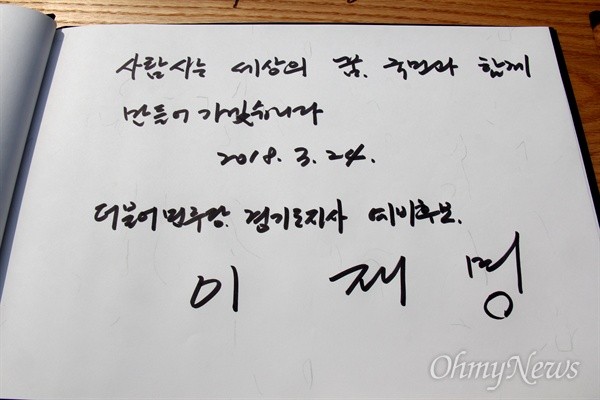 사람사는 세상의 꿈. 국민과 함께
만들어 가겠습니다
2018. 3. 24.
더불어민주당. 경기도지사 예비후보.
이 재 명
OhmyNews